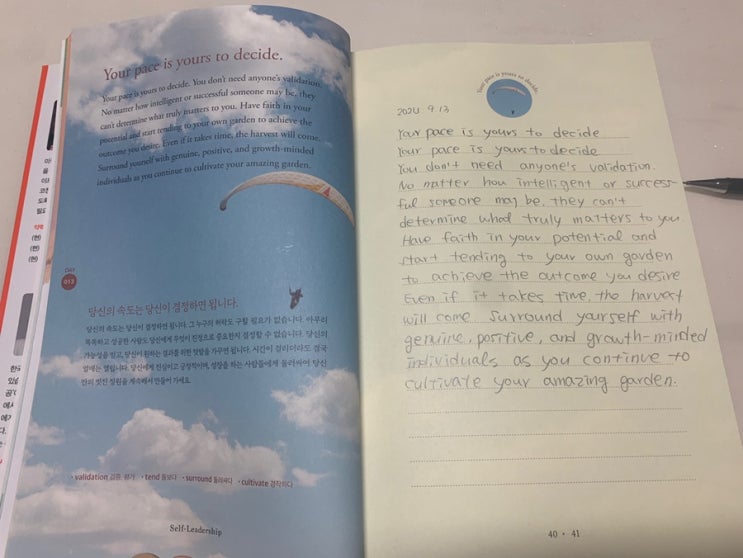 Your pace is yours to decide.
Your pace is yours to decide. You don't need anyone's validation.
No matter how intelligent or successful someone may be, they
can't determine what truly matters to you. Have faith in your
potential and start tending to your own garden to achieve the
outcome you desire. Even if it takes time, the harvest will come.
Surround yourself with genuine, positive, and growth-minded
individuals as you continue to cultivate your amazing garden.
DAY
013
당신의 속도는 당신이 결정하면 됩니다.
당신의 속도는 당신이 결정하면 됩니다. 그 누구의 허락도 구할 필요가 없습니다. 아무리
똑똑하고 성공한 사람도 당신에게 무엇이 진정으로 중요한지 결정할 수 없습니다. 당신의
가능성을 믿고, 당신이 원하는 결과를 위한 텃밭을 가꾸면 됩니다. 시간이 걸리더라도 결국
열매는 열립니다. 당신에게 진실하고 긍정적이며, 성장을 하는 사람들에게 둘러싸여 당신
만의 멋진 정원을 계속해서 만들어 가세요.
• validation 검증, 평가 • tend 돌보다 • surround 둘러싸다 • cultivate 경작하다
Self-Leadership
Your pace is yours to decide.
2024 9.13
Your pace is yours to decide
Your pace is yours to decide
You don't need anyone's validation.
No matter how intelligent or success-
ful someone may be, they can't
determine what truly matters to you.
Have faith in your potential and
start tending to your own garden
to achieve the outcome you desire
Even if it takes time, the harvest
will come Surround yourself with
genuine, positive, and growth-minded
individuals as you continue to
cultivate your amazing garden.
40 • 41